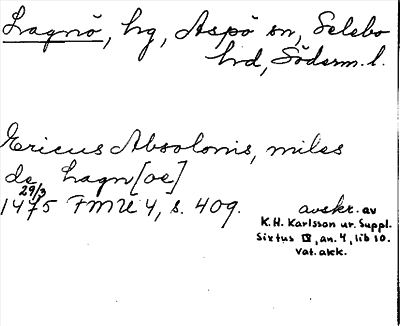 Lagnö, hg, Aspö sn, Selebo
hd, Söderm. l.
Ericus Absolonis, miles
de Lagn[oe]
29/3
1475 FMU 4, s. 409.
avskr. av
K.H. Karlsson ur Suppl.
Sixtus IV, an. 4, lib 10.
Vat. akk.